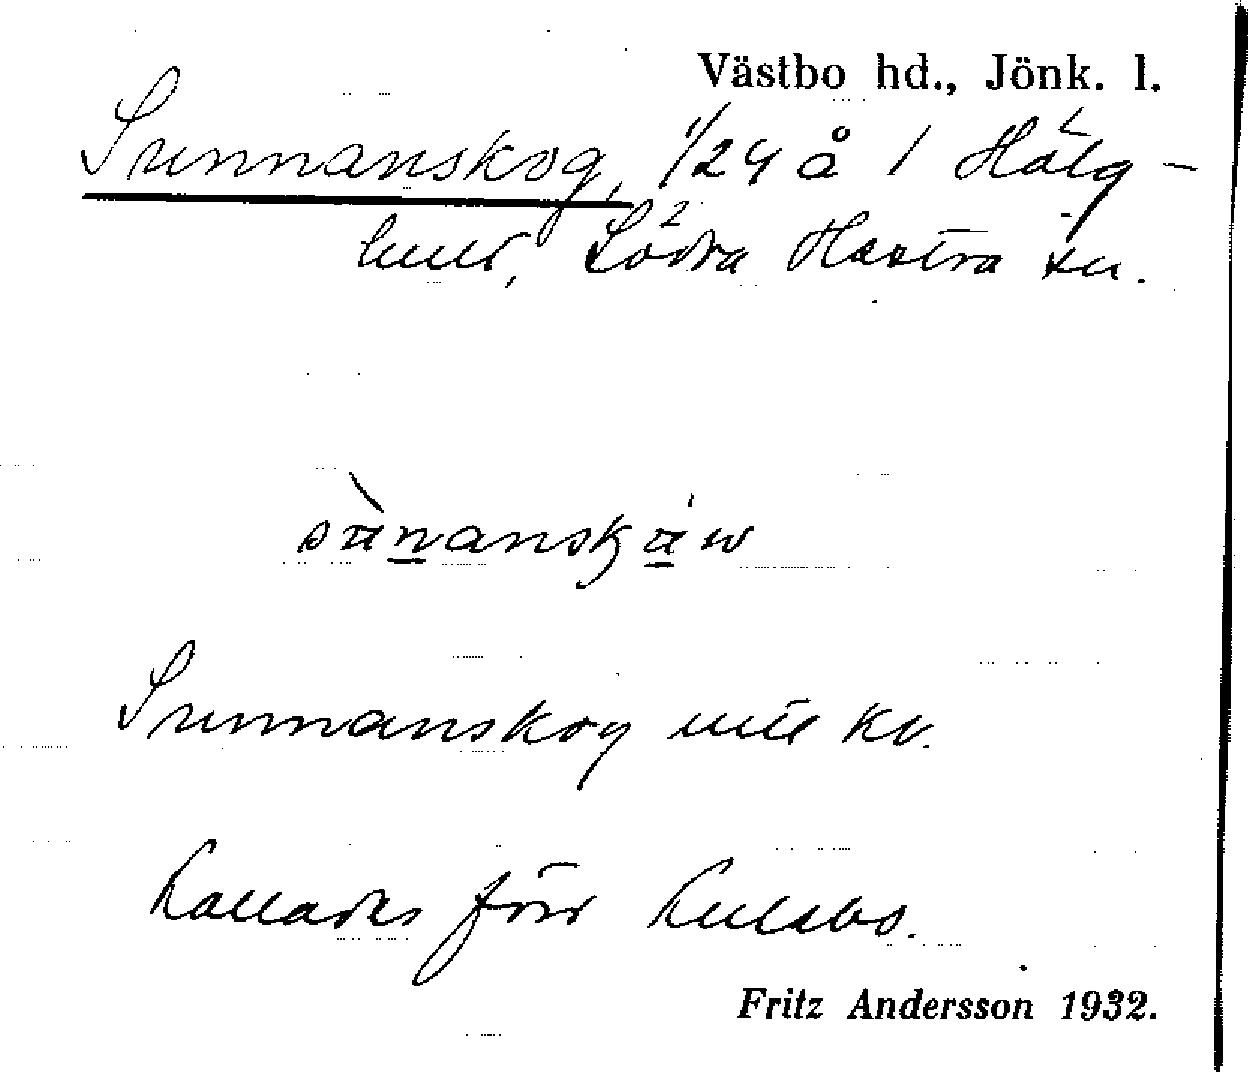 Västbo hd., Jönk. l.
Sunnanskog, 1/24 å 1 Hälg-
hult, Södra Hestra sn.
sànanskäw
Sunnanskog
Kallades förr
Fritz Andersson 1932.